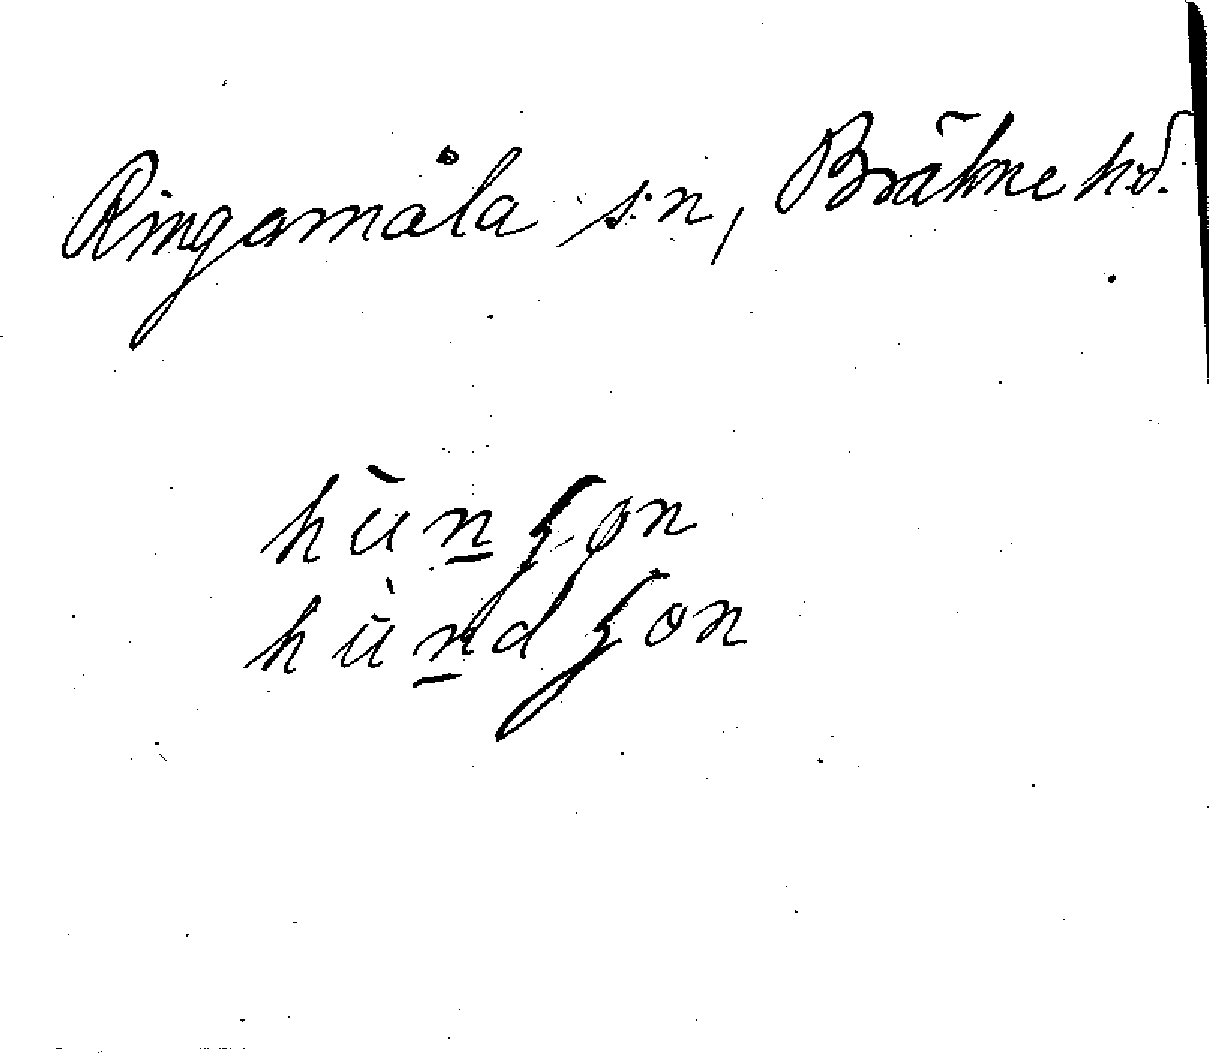 Ringamåla s:n, Bräkne hd.
hùn̲ʒon
hùn̲dʒon